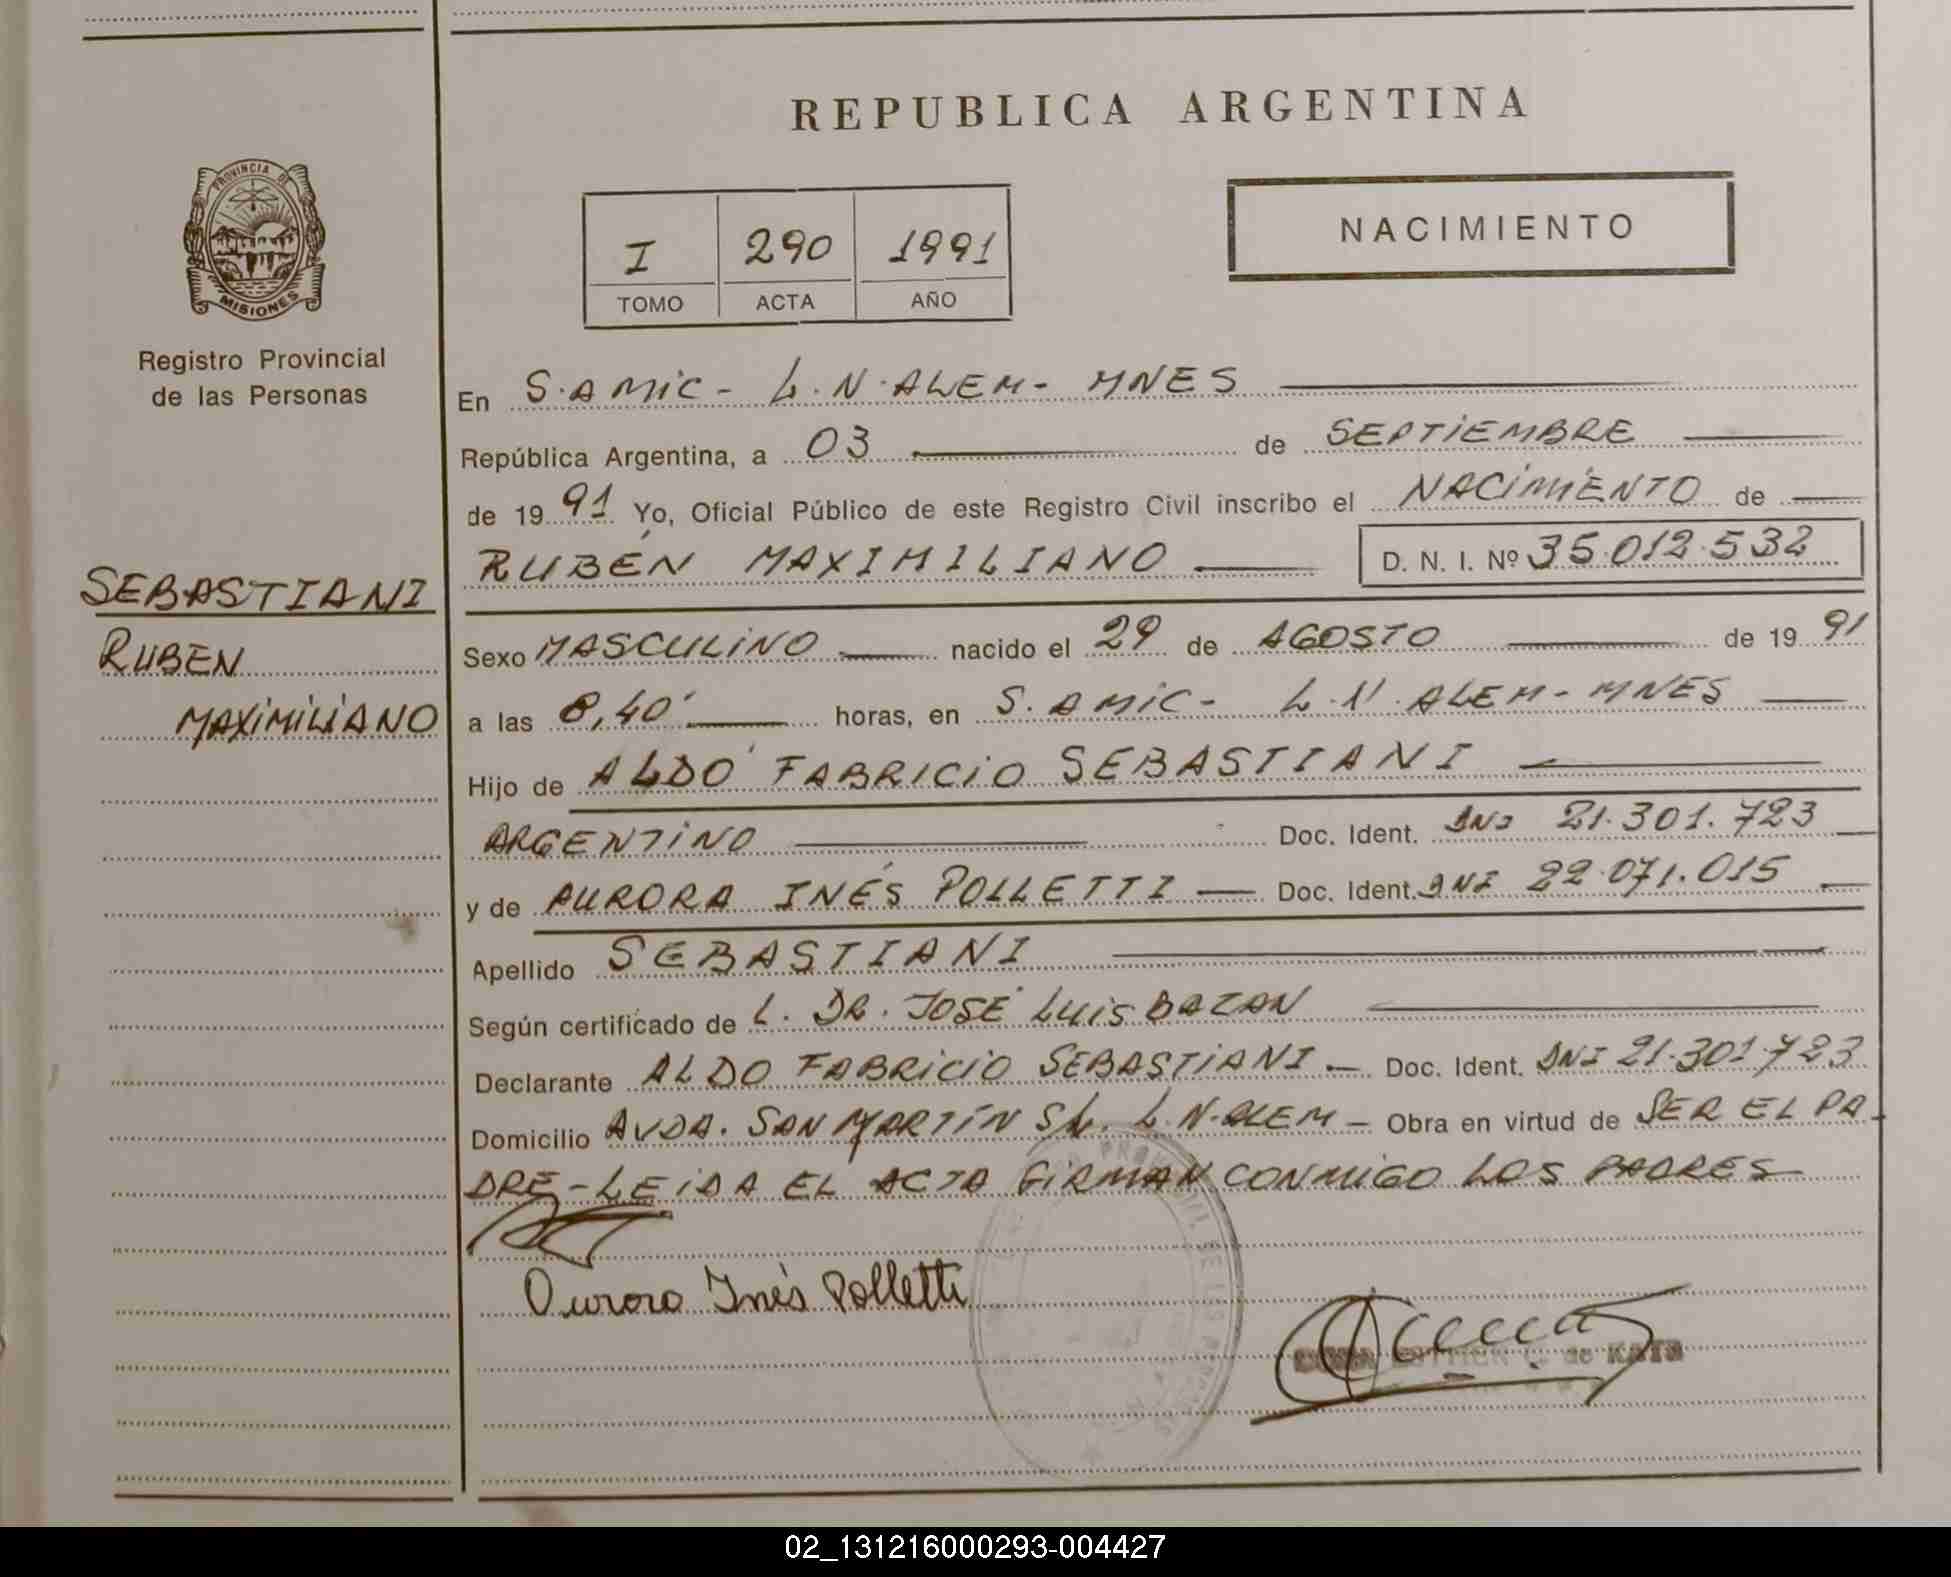 REPUBLICA ARGENTINA
PROVINCIA DE
MISIONES
Registro Provincial
de las Personas
I 290 1991
TOMO ACTA AÑO
NACIMIENTO
En S. AMIC - L. N. ALEM - MNES
República Argentina, a 03 de SEPTIEMBRE
de 19 91 Yo, Oficial Público de este Registro Civil inscribo el NACIMIENTO de
RUBÉN MAXIMILIANO D. N. I. Nº 35.012.532
SEBASTIANI
RUBEN
MAXIMILIANO
Sexo MASCULINO nacido el 29 de AGOSTO de 19 91
a las 8,40' horas, en S. AMIC - L. N. ALEM - MNES
Hijo de ALDO FABRICIO SEBASTIANI
ARGENTINO Doc. Ident. DNI 21.301.723
y de AURORA INÉS POLLETTI Doc. Ident. DNI 22.071.015
Apellido SEBASTIANI
Según certificado de L. DR. JOSÉ LUIS BAZAN
Declarante ALDO FABRICIO SEBASTIANI Doc. Ident. DNI 21.301.723
Domicilio AVDA. SAN MARTÍN L. N. ALEM - Obra en virtud de SER EL PA-
DRE - LEIDA EL ACTA FIRMAN CONMIGO LOS PADRES
Aurora Inés Polletti
02_131216000293-004427